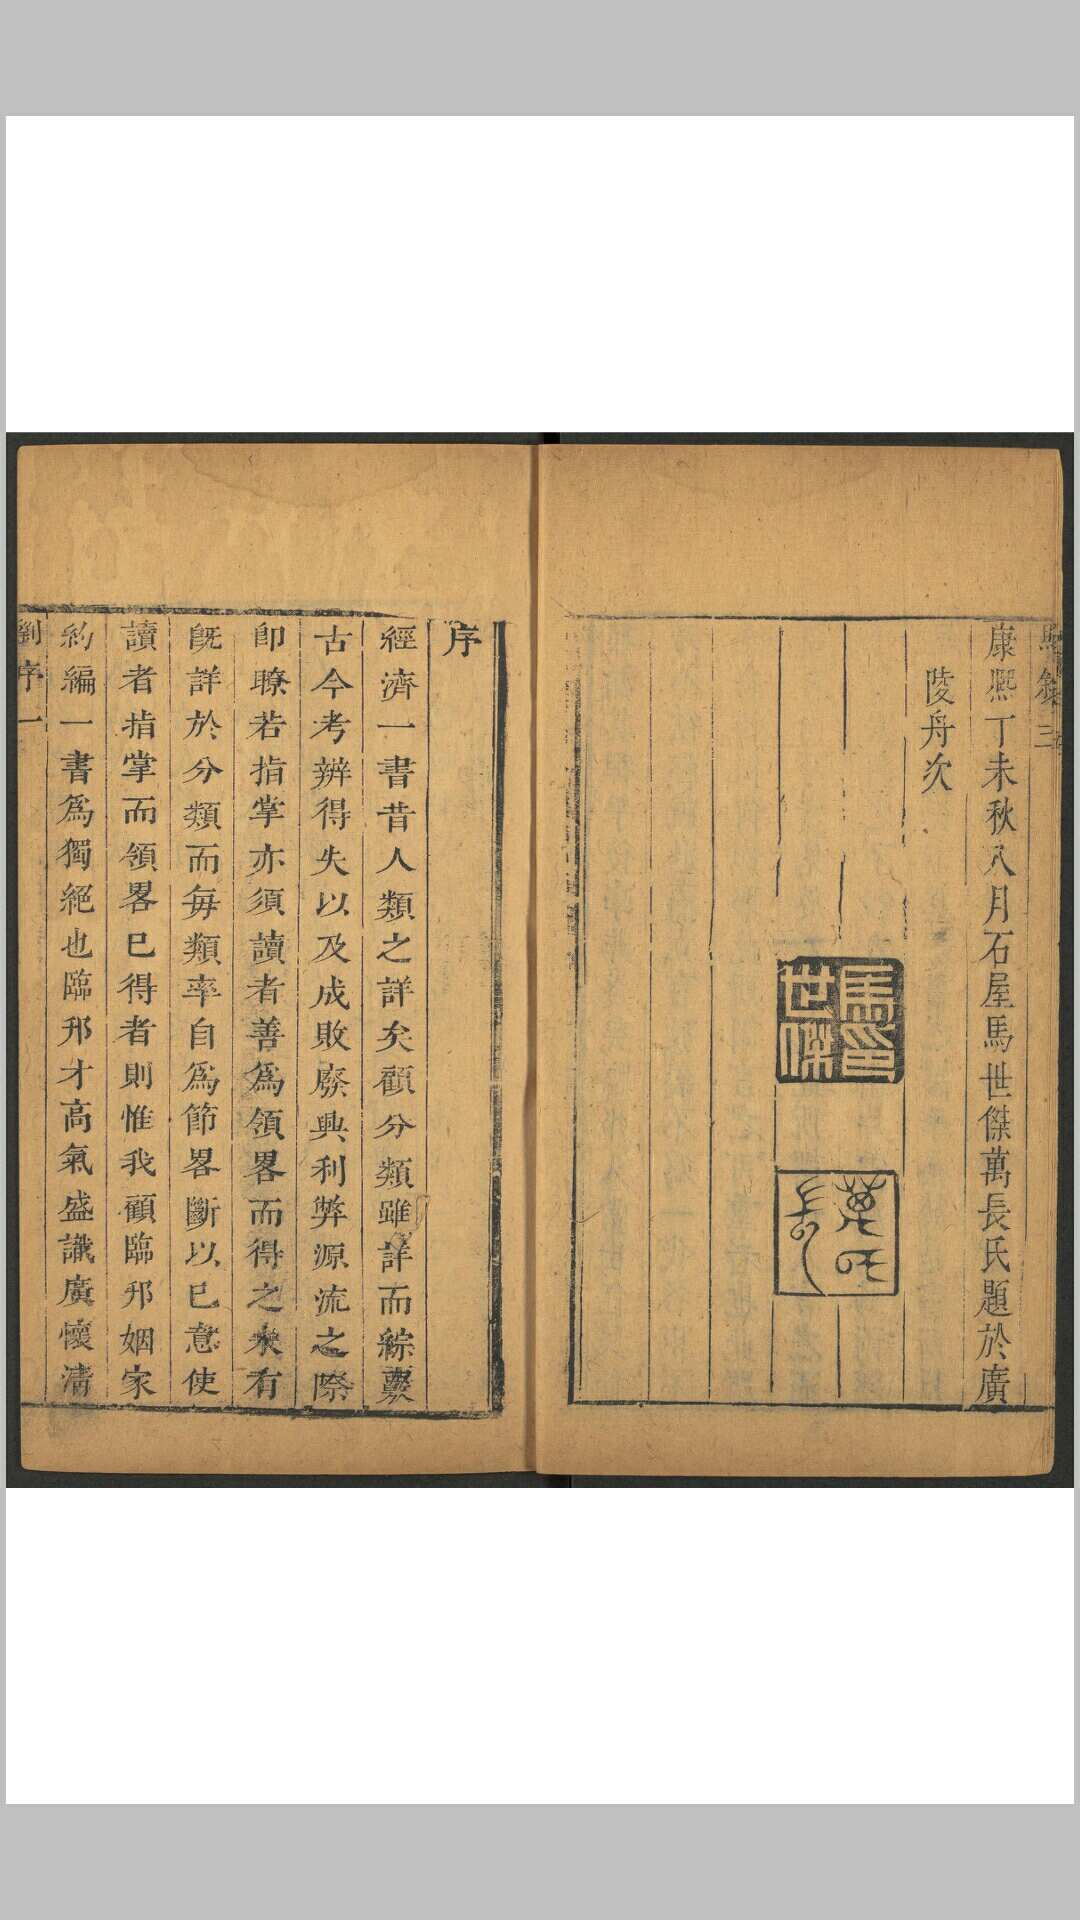 康熙丁未秋八月石屋馬世傑萬長氏題於廣
陵舟次
馬印世傑
萬長氏
序
經濟一書昔人類之詳矣顧分類雖詳而綜覈
古今考辨得失以及成敗廢興利弊源流之際
卽瞭若指掌亦須讀者善爲領畧而得之未有
旣詳於分類而每類率自爲節畧斷以已意使
讀者指掌而領畧已得者則惟我顧臨邘姻家
約編一書爲獨絕也臨邘才高氣盛識廣懷淸
劉序 一